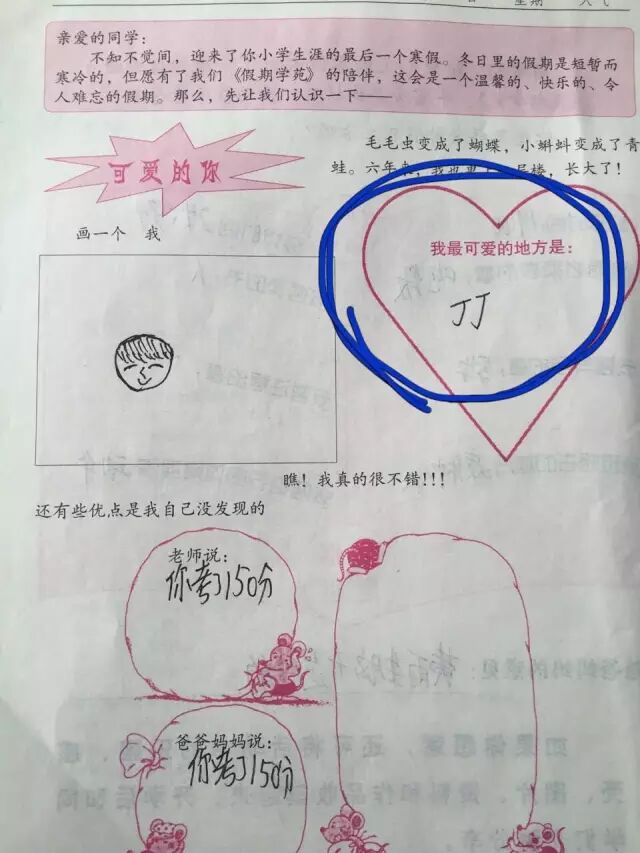 星期
天气
亲爱的同学：
不知不觉间，迎来了你小学生涯的最后一个寒假。冬日里的假期是短暂而
寒冷的，但愿有了我们《假期学苑》的陪伴，这会是一个温馨的、快乐的、令
人难忘的假期。那么，先让我们认识一下——
毛毛虫变成了蝴蝶，小蝌蚪变成了青
蛙。六年来，我也更上一层楼，长大了！
可爱的你
画一个 我
我最可爱的地方是：
JJ
瞧！我真的很不错！！！
还有些优点是我自己没发现的
老师说：
你考了150分
爸爸妈妈说：
你考了150分